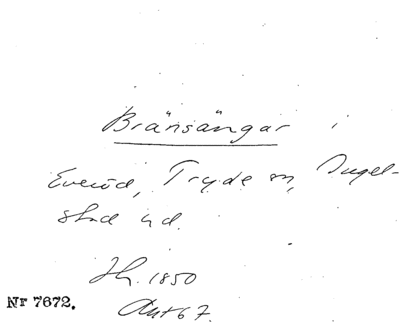 Bränsängar i
Everöd, Tryde sn, Ingel-
stad hd.
Jh. 1850
Nr 7672.
Akt 67.